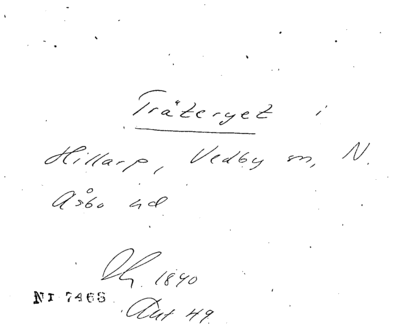 Träteryet i
Hillarp, Vedby sn, N.
Åsbo hd
1840
NI 7468
Ant 49.